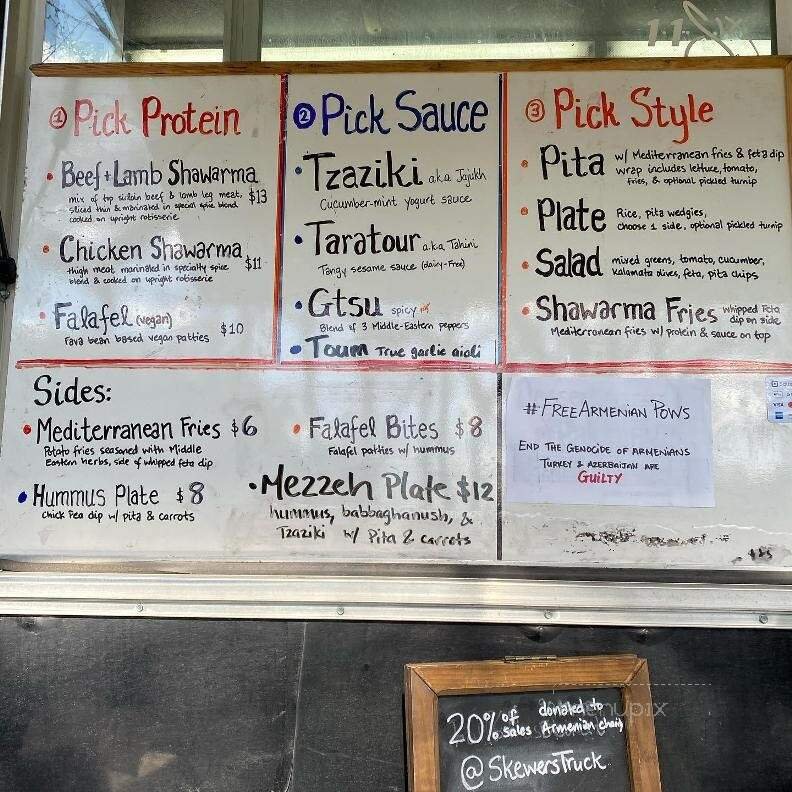 ① Pick Protein
• Beef + Lamb Shawarma
mix of top sirloin beef & lamb leg meat, $13
sliced thin & marinated in special spice blend
cooked on upright rotisserie
• Chicken Shawarma
thigh meat marinated in specialty spice $11
blend & cooked on upright rotisserie
• Falafel (vegan)
Fava bean based vegan patties $10
② Pick Sauce
• Tzaziki a.k.a Jajukh
Cucumber-mint yogurt sauce
• Taratour a.k.a Tahini
Tangy sesame sauce (dairy-free)
• Gtsu spicy
Blend of 3 Middle-Eastern peppers
• Toum True garlic aioli
③ Pick Style
• Pita w/ Mediterranean fries & feta dip
wrap includes lettuce, tomato,
fries, & optional pickled turnip
• Plate Rice, pita wedgies,
choose 1 side, optional pickled turnip
• Salad mixed greens, tomato, cucumber,
kalamata olives, feta, pita chips
• Shawarma Fries whipped Feta
dip on side
Mediterranean fries w/ protein & sauce on top
Sides:
• Mediterranean Fries $6
Potato fries seasoned with Middle
Eastern herbs, side of whipped feta dip
• Hummus Plate $8
Chick Pea dip w/ pita & carrots
• Falafel Bites $8
Falafel patties w/ hummus
• Mezzeh Plate $12
hummus, babbaghanush, &
Tzaziki w/ Pita & carrots
#FREEARMENIAN POWS
END THE GENOCIDE OF ARMENIANS
TURKEY & AZERBAIJAN ARE
GUILTY
VISA
20% of sales donated to Armenian charity
@SkewersTruck
menupix